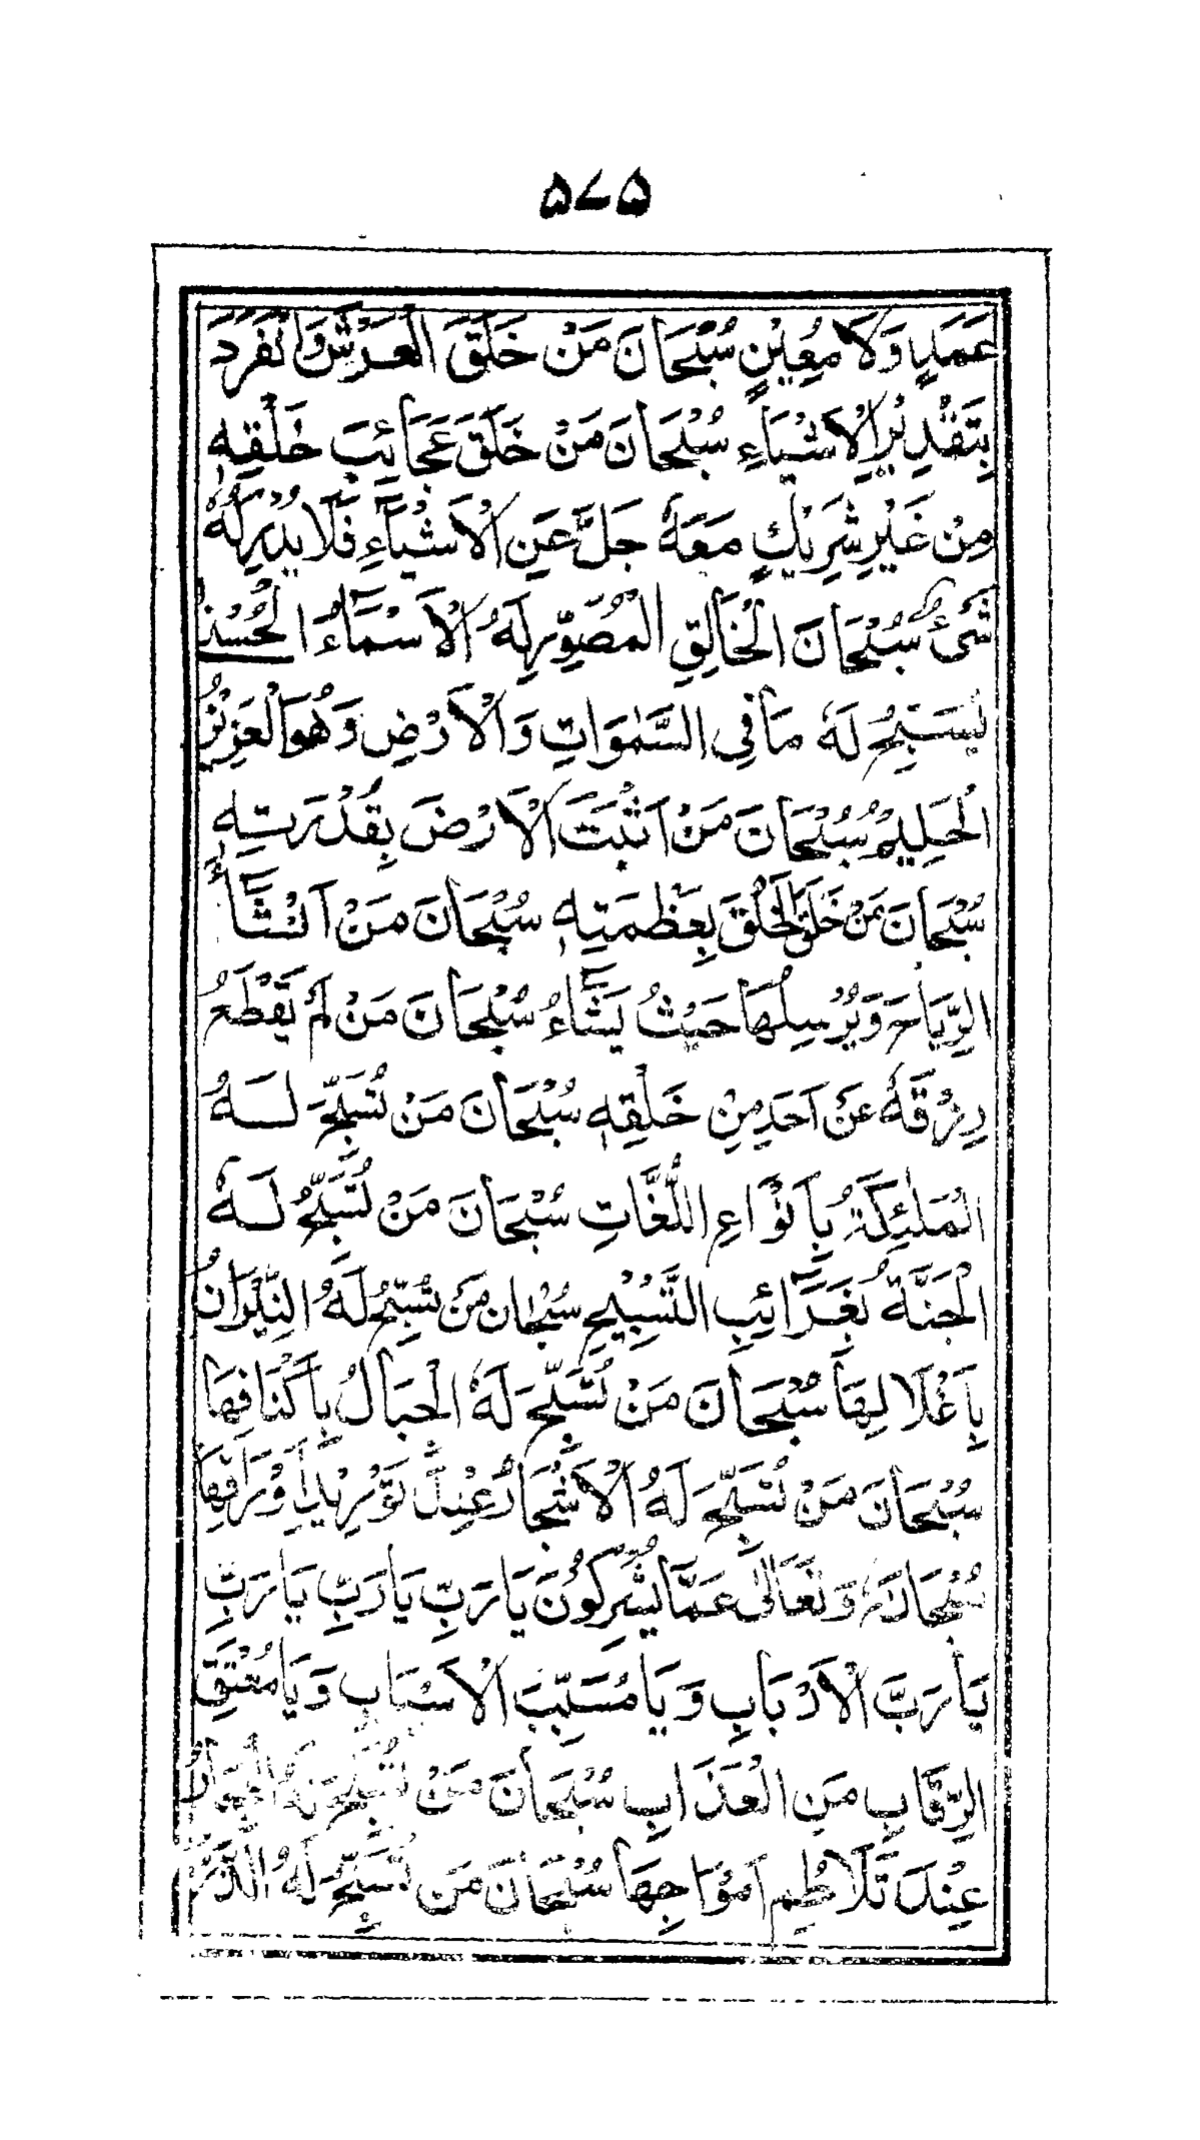 ۵۷۵
عَمَدٍ وَلَا مُعِيْنٍ سُبْحَانَ مَنْ خَلَقَ الْعَرْشَ وَانْفَرَدَ
بِتَقْدِيْرِ الْاَشْيَاءِ سُبْحَانَ مَنْ خَلَقَ عَجَائِبَ خَلْقِهٖ
مِنْ غَيْرِ شَرِيْكٍ مَعَهٗ جَلَّ عَنِ الْاَشْيَآءِ فَلَا يُدْرِكُهٗ
شَیْءٌ سُبْحَانَ الْخَالِقِ الْمُصَوِّرِ لَهُ الْاَسْمَآءُ الْحُسْنٰى
يُسَبِّحُ لَهٗ مَا فِي السَّمٰوَاتِ وَالْاَرْضِ وَهُوَ الْعَزِيْزُ
الْحَلِيْمُ سُبْحَانَ مَنْ اَثْبَتَ الْاَرْضَ بِقُدْرَتِهٖ
سُبْحَانَ مَنْ خَلَقَ الْخَلْقَ بِعَظَمَتِهٖ سُبْحَانَ مَنْ اَنْشَأَ
الرِّيَاحَ وَيُرْسِلُهَا حَيْثُ يَشَآءُ سُبْحَانَ مَنْ لَمْ يَقْطَعْ
رِزْقَهٗ عَنْ اَحَدٍ مِنْ خَلْقِهٖ سُبْحَانَ مَنْ تُسَبِّحُ لَهُ
الْمَلٰئِكَةُ بِاَنْوَاعِ اللُّغَاتِ سُبْحَانَ مَنْ تُسَبِّحُ لَهُ
الْجَنَّةُ بِغَرَآئِبِ التَّسْبِيْحِ سُبْحَانَ مَنْ تُسَبِّحُ لَهُ النِّيْرَانُ
بِاَغْلَالِهَا سُبْحَانَ مَنْ تُسَبِّحُ لَهُ الْجِبَالُ بِاَكْنَافِهَا
سُبْحَانَ مَنْ تُسَبِّحُ لَهُ الْاَشْجَارُ عِنْدَ تَوْرِيْدِ اَوْرَاقِهَا
سُبْحَانَهٗ وَتَعَالٰى عَمَّا يُشْرِكُوْنَ يَا رَبِّ يَا رَبِّ يَا رَبِّ
يَا رَبَّ الْاَرْبَابِ وَيَا مُسَبِّبَ الْاَسْبَابِ وَيَا مُعْتِقَ
الرِّقَابِ مِنَ الْعَذَابِ سُبْحَانَ مَنْ تُسَبِّحُ لَهُ
عِنْدَ تَلَاطُمِ اَمْوَاجِهَا سُبْحَانَ مَنْ تُسَبِّحُ لَهُ